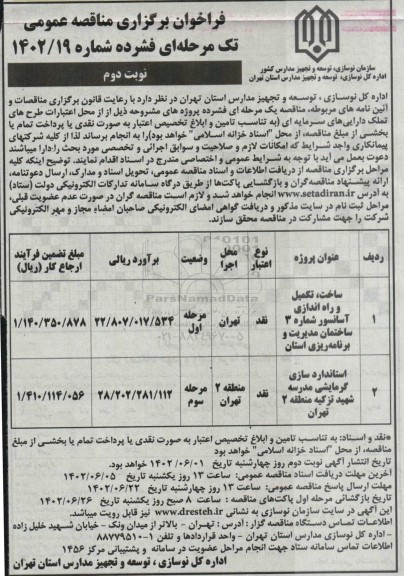 فراخوان برگزاری مناقصه عمومی
تک مرحله‌ای فشرده شماره ۱۴۰۲/۱۹
نوبت دوم
سازمان نوسازی، توسعه و تجهیز مدارس کشور
اداره کل نوسازی، توسعه و تجهیز مدارس استان تهران
اداره کل نوسازی، توسعه و تجهیز مدارس استان تهران در نظر دارد با رعایت قانون برگزاری مناقصات و
آئین نامه های مربوطه، مناقصه یک مرحله ای فشرده پروژه های مشروحه ذیل از از محل اعتبارات طرح های
تملک دارایی‌های سرمایه ای (به تناسب تامین و ابلاغ تخصیص اعتبار به صورت نقدی یا پرداخت تمام یا
بخشی از مبلغ مناقصه، از محل "اسناد خزانه اسلامی" خواهد بود)را به انجام برساند لذا از کلیه شرکتهای
پیمانکاری واجد شرایط که امکانات لازم و صلاحیت و سوابق اجرائی و تخصصی مورد بحث را دارا میباشند
دعوت بعمل می آید با توجه به شرایط عمومی و اختصاصی مندرج در اسناد اقدام نمایند. توضیح اینکه کلیه
مراحل برگزاری مناقصه از دریافت اطلاعات و اسناد مناقصه عمومی، تحویل اسناد و مدارک، ارسال دعوتنامه،
ارائه پیشنهاد مناقصه گران و بازگشایی پاکت‌ها از طریق درگاه سامانه تدارکات الکترونیکی دولت (ستاد)
به آدرس www.setadiran.ir انجام خواهد شد و لازم است مناقصه گران در صورت عدم عضویت قبلی،
مراحل ثبت نام در سایت مذکور و دریافت گواهی امضای الکترونیکی صاحبان امضاء مجاز و مهر الکترونیکی
شرکت را جهت مشارکت در مناقصه محقق سازند.
ردیف عنوان پروژه نوع اعتبار محل اجرا وضعیت برآورد ریالی مبلغ تضمین فرآیند ارجاع کار (ریال)
۱ ساخت، تکمیل و راه اندازی آسانسور شماره ۳ ساختمان مدیریت و برنامه‌ریزی استان نقد تهران مرحله اول ۲۲/۸۰۷/۰۱۷/۵۳۴ ۱/۱۴۰/۳۵۰/۸۷۸
۲ استاندارد سازی گرمایشی مدرسه شهید تزکیه منطقه ۲ تهران نقد منطقه ۲ تهران مرحله سوم ۲۸/۲۰۲/۲۸۱/۱۱۲ ۱/۴۱۰/۱۱۴/۰۵۶
*نقد و اسناد: به تناسب تامین و ابلاغ تخصیص اعتبار به صورت نقدی یا پرداخت تمام یا بخشی از مبلغ
مناقصه، از محل "اسناد خزانه اسلامی" خواهد بود
تاریخ انتشار آگهی نوبت دوم روز چهارشنبه تاریخ ۱۴۰۲/۰۶/۰۱ خواهد بود.
آخرین مهلت دریافت اسناد مناقصه عمومی: ساعت ۱۳ روز یکشنبه تاریخ ۱۴۰۲/۰۶/۰۵
مهلت ارسال پاسخ مناقصه عمومی: ساعت ۱۳ روز چهارشنبه تاریخ ۱۴۰۲/۰۶/۲۲
تاریخ بازگشائی مرحله اول پاکت‌های مناقصه : ساعت ۸ صبح روز یکشنبه تاریخ ۱۴۰۲/۰۶/۲۶
این آگهی در سایت سازمان نوسازی به نشانی www.dresteh.ir نیز قابل رویت میباشد.
اطلاعات تماس دستگاه مناقصه گزار : آدرس : تهران - بالاتر از میدان ونک - خیابان شهید خلیل زاده
- اداره کل نوسازی مدارس استان تهران - واحد قراردادها و تلفن ۱-۸۸۷۷۹۵۱۰
اطلاعات تماس سامانه ستاد جهت انجام مراحل عضویت در سامانه و پشتیبانی مرکز ۱۴۵۶
اداره کل نوسازی ، توسعه و تجهیز مدارس استان تهران